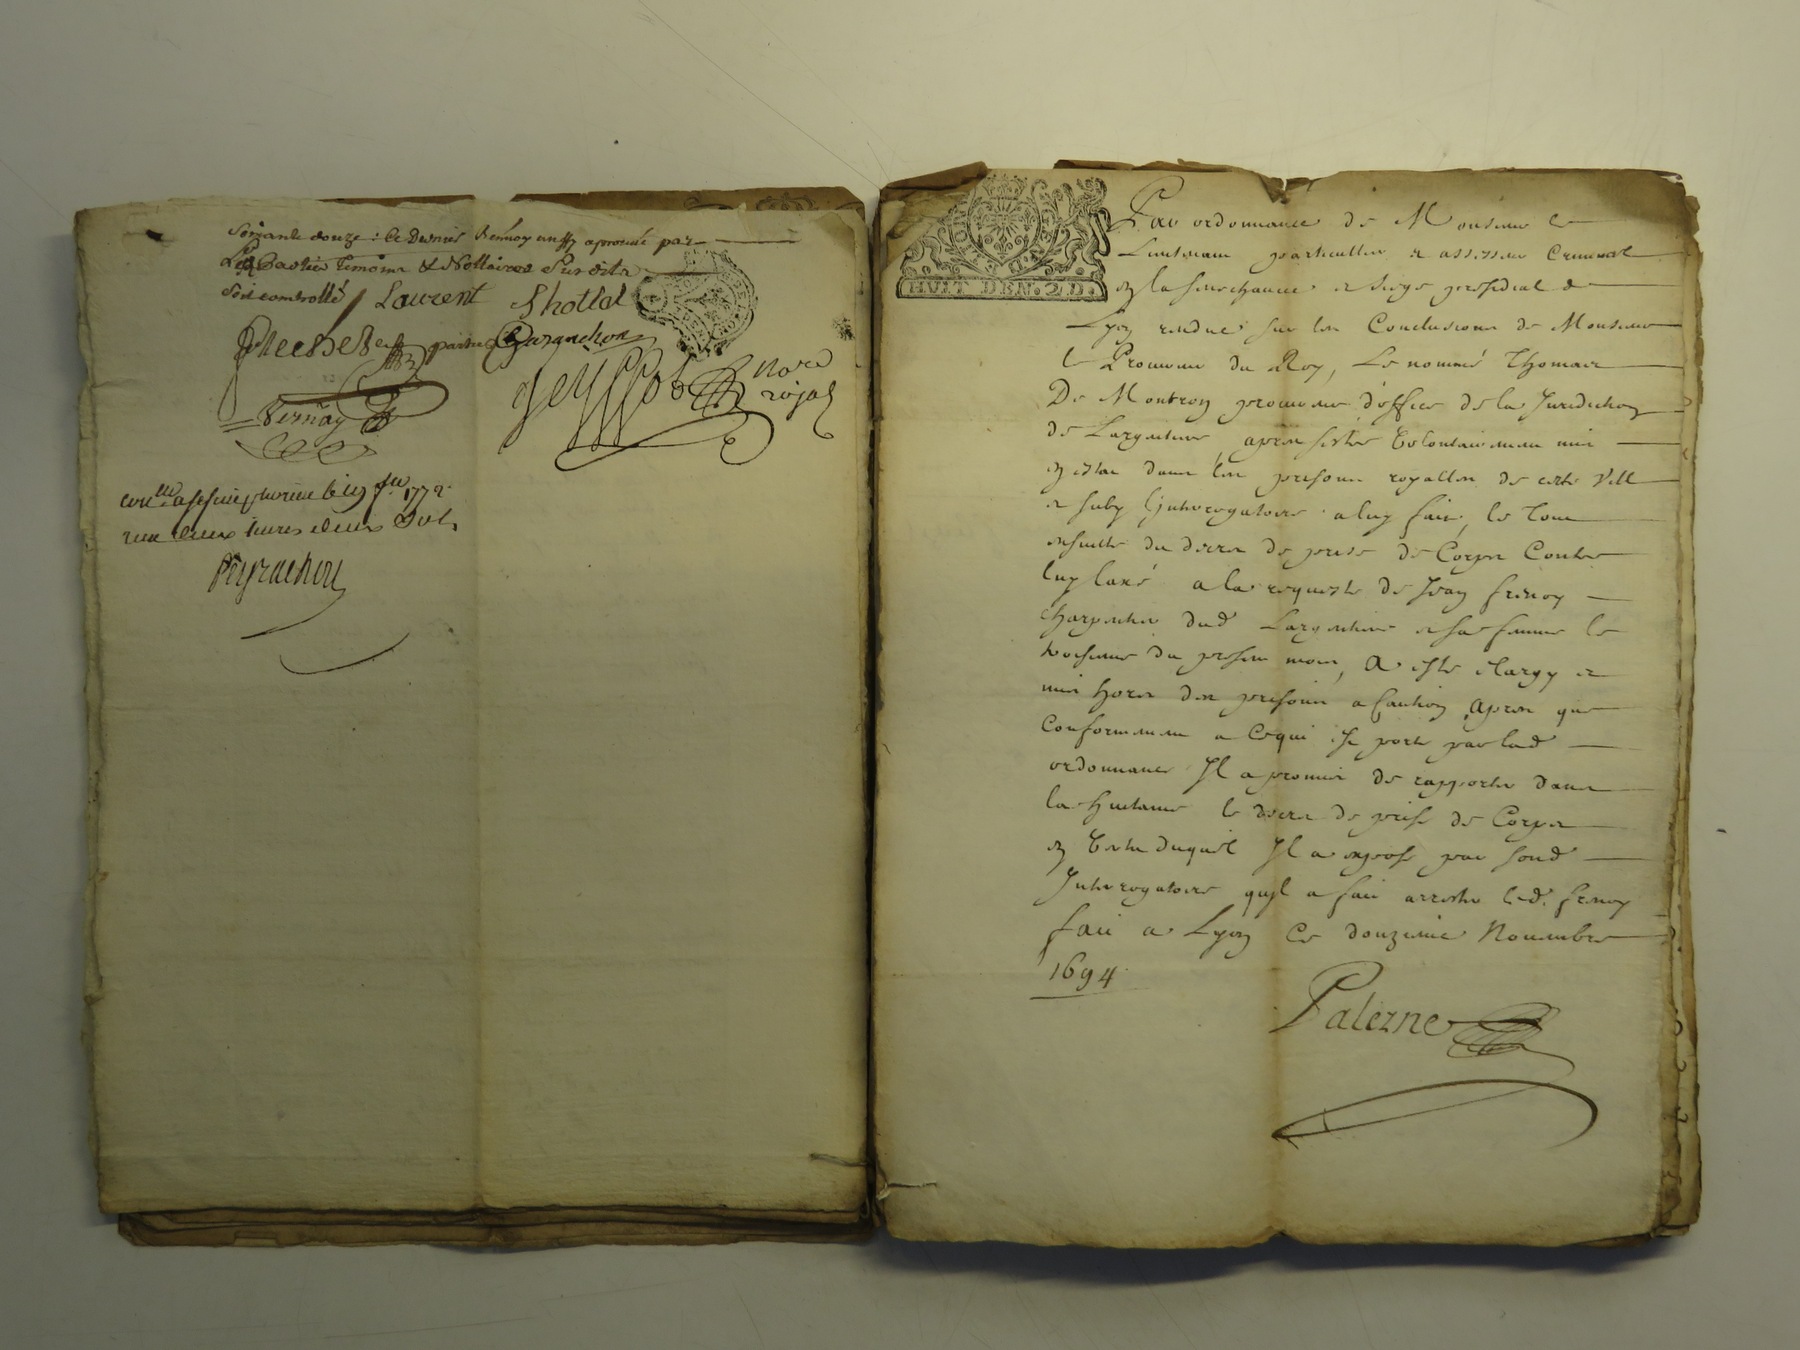 soixante douze : ce dernier Renvoy aussy aprouvé par
Les parties Temoins & Nottaires Susdits
Soit controllé
Laurent
Garanchon
Vernay
Nore
royal
1772
deux livres deux sols
Peyrachon
HUIT DEN. 2 D.
Par ordonnance de Monsieur le
Lieutenant particullier et assesseur Criminel
en la senechaucee et siege presidial de
Lyon rendue sur les Conclusions de Monsieur
le Procureur du Roy, Le nommé Thomas
De Montroy procureur d'office de la Juridiction
de Largentiere, apres s'estre volontairement mis
en estat dans les prisons royalles de cette ville
et suby l'interrogatoire a luy fait, le tout
ensuitte du decret de prise de Corps Contre
luy laxé a la requeste de Jean frenoy
charpentier dud Largentiere et sa femme le
troisieme du present mois, a esté elargy et
mis hors des prisons a Caution apres que
Conformement a Ce qui est porté par lad
ordonnance Il a promis de rapporter dans
la huictaine le decret de prise de Corps
en vertu duquel Il a exposé par sond
Interrogatoire qu'il a fait arrester led. frenoy
fait a Lyon Ce douzieme Novembre
1694
Palerne